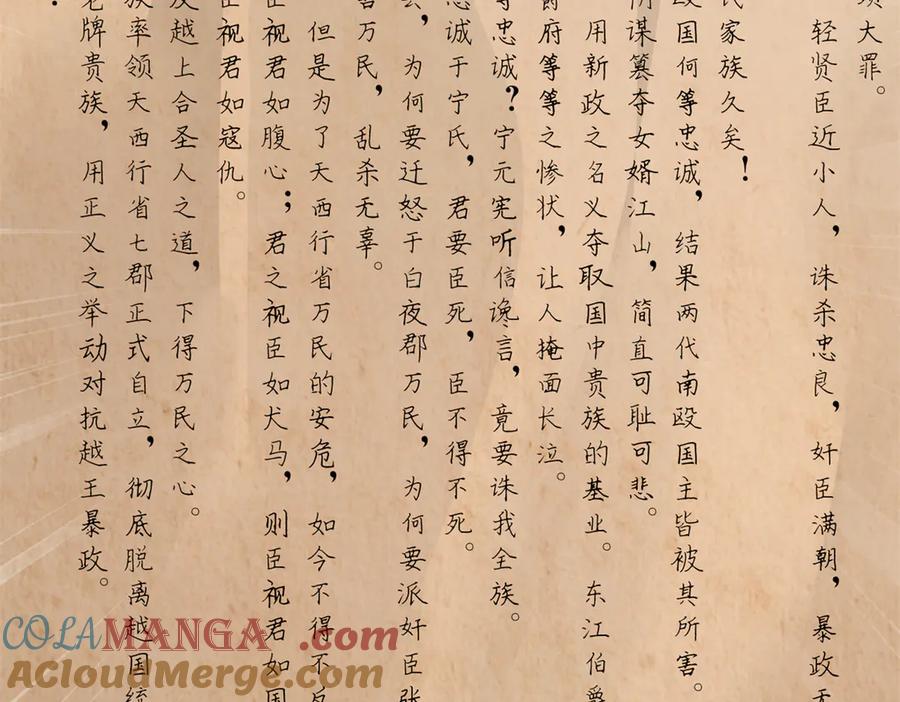 项大罪。
轻贤臣近小人，诛杀忠良，奸臣满朝，暴政无
氏家族久矣！
殴国何等忠诚，结果两代南殴国主皆被其所害。
阴谋篡夺女婿江山，简直可耻可悲。
用新政之名义夺取国中贵族的基业。东江伯爵
爵府等等之惨状，让人掩面长泣。
等忠诚？宁元宪听信谗言，竟要诛我全族。
忠诚于宁氏，君要臣死，臣不得不死。
，为何要迁怒于白夜郡万民，为何要派奸臣张
害万民，乱杀无辜。
但是为了天西行省万民的安危，如今不得不反
臣视君如腹心；君之视臣如犬马，则臣视君如国
臣视君如寇仇。
反越上合圣人之道，下得万民之心。
族率领天西行省七郡正式自立，彻底脱离越国统
老牌贵族，用正义之举动对抗越王暴政。
COLAMANGA.com
ACloudMerge.com